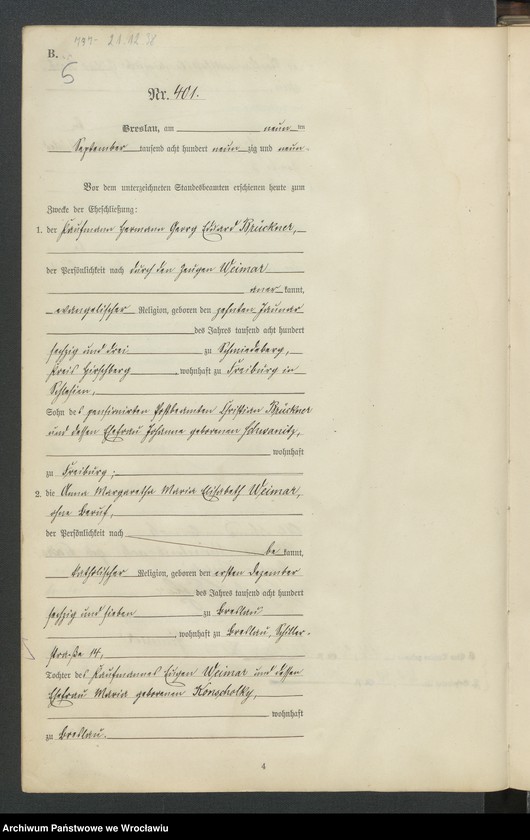 B.
6
Nr. 401.
Breslau, am neun ten
September tausend acht hundert neun zig und neun.
Vor dem unterzeichneten Standesbeamten erschienen heute zum
Zwecke der Eheschließung:
1. der Kaufmann Hermann Georg Eduard Brückner,
der Persönlichkeit nach durch den Zeugen Weimar
aner kannt,
evangelischer Religion, geboren den zehnten Januar
des Jahres tausend acht hundert
sechzig und drei zu Schmiedeberg,
Kreis Hirschberg, wohnhaft zu Freiburg in
Schlesien,
Sohn des pensionirten Postbeamten Christian Brückner
und dessen Ehefrau Johanna geborenen Schwanitz,
wohnhaft
zu Freiburg;
2. die Anna Margaretha Maria Elisabeth Weimar,
ohne Beruf,
der Persönlichkeit nach
be kannt,
katholischer Religion, geboren den ersten Dezember
des Jahres tausend acht hundert
sechzig und sieben zu Breslau
, wohnhaft zu Breslau, Schiller-
straße 14,
Tochter des Kaufmannes Eugen Weimar und dessen
Ehefrau Maria geborenen
wohnhaft
zu Breslau.
4
Archiwum Państwowe we Wrocławiu